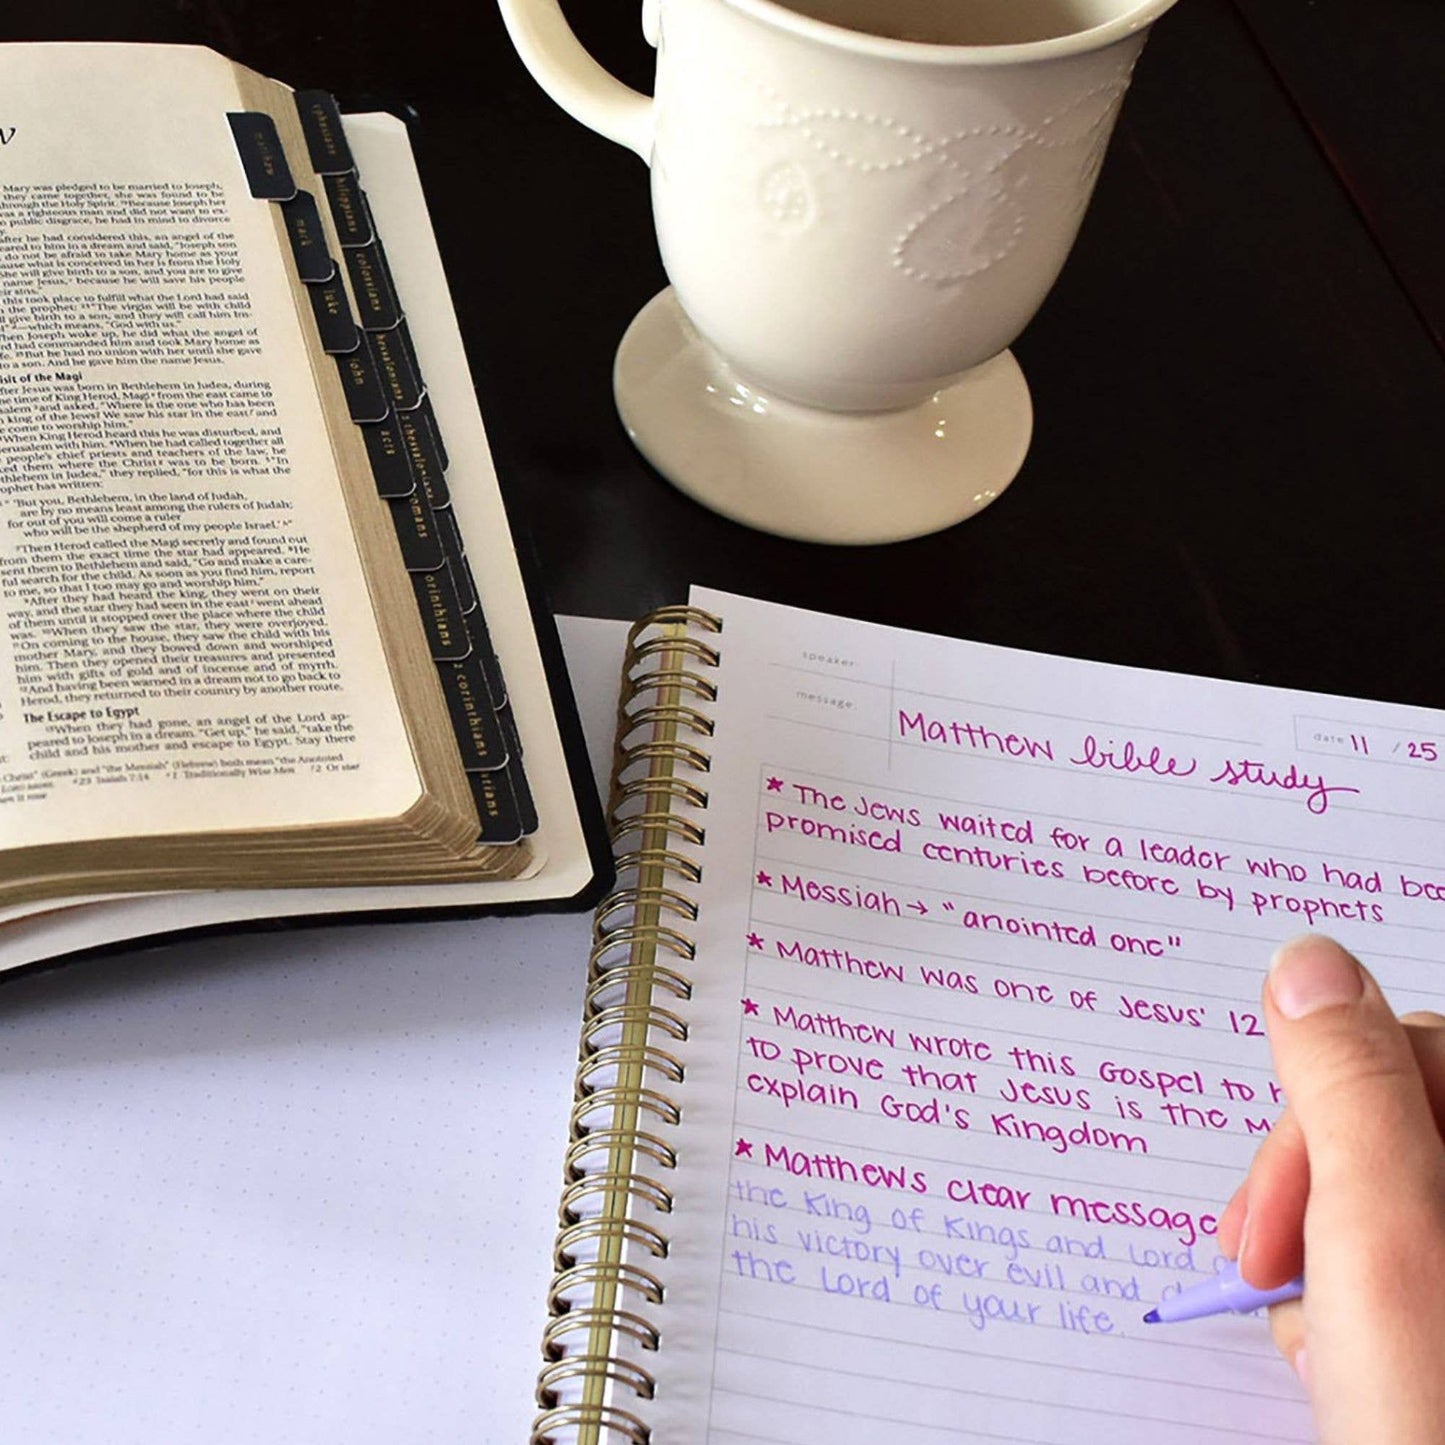 w
Mary was pledged to be married to Joseph,
they came together, she was found to be
through the Holy Spirit. 19Because Joseph her
was a righteous man and did not want to ex-
public disgrace, he had in mind to divorce
after he had considered this, an angel of the
eared to him in a dream and said, "Joseph son
do not be afraid to take Mary home as your
ause what is conceived in her is from the Holy
She will give birth to a son, and you are to give
name Jesus, because he will save his people
eir sins."
this took place to fulfill what the Lord had said
the prophet: 23"The virgin will be with child
ll give birth to a son, and they will call him Im-
—which means, "God with us."
hen Joseph woke up, he did what the angel of
rd had commanded him and took Mary home as
fe. 25But he had no union with her until she gave
to a son. And he gave him the name Jesus.
isit of the Magi
fter Jesus was born in Bethlehem in Judea, during
he time of King Herod, Magi from the east came to
salem 2and asked, "Where is the one who has been
king of the Jews? We saw his star in the east and
come to worship him."
3When King Herod heard this he was disturbed, and
erusalem with him. 4When he had called together all
people's chief priests and teachers of the law, he
ked them where the Christ was to be born. 5"In
thlehem in Judea," they replied, "for this is what the
ophet has written:
6"'But you, Bethlehem, in the land of Judah,
are by no means least among the rulers of Judah;
for out of you will come a ruler
who will be the shepherd of my people Israel.'"
7Then Herod called the Magi secretly and found out
from them the exact time the star had appeared. 8He
sent them to Bethlehem and said, "Go and make a care-
ful search for the child. As soon as you find him, report
to me, so that I too may go and worship him."
9After they had heard the king, they went on their
way, and the star they had seen in the east went ahead
of them until it stopped over the place where the child
was. 10When they saw the star, they were overjoyed.
11On coming to the house, they saw the child with his
mother Mary, and they bowed down and worshiped
him. Then they opened their treasures and presented
him with gifts of gold and of incense and of myrrh.
12And having been warned in a dream not to go back to
Herod, they returned to their country by another route.
The Escape to Egypt
13When they had gone, an angel of the Lord ap-
peared to Joseph in a dream. "Get up," he said, "take the
child and his mother and escape to Egypt. Stay there
Christ" (Greek) and "the Messiah" (Hebrew) both mean "the Anointed
23 Isaiah 7:14 1 Traditionally Wise Men 2 Or star
matthew
mark
luke
john
acts
omans
orinthians
2 corinthians
ephesians
hilippians
colossians
hessalonians
thessalonians
speaker:
message:
date 11 / 25
Matthew bible study
* The Jews waited for a leader who had bee
promised centuries before by prophets
* Messiah → "anointed one"
* Matthew was one of Jesus' 12
* Matthew wrote this Gospel to
to prove that Jesus is the M
explain God's Kingdom
* Matthews clear message
the King of Kings and Lord
his victory over evil and d
the Lord of your life.